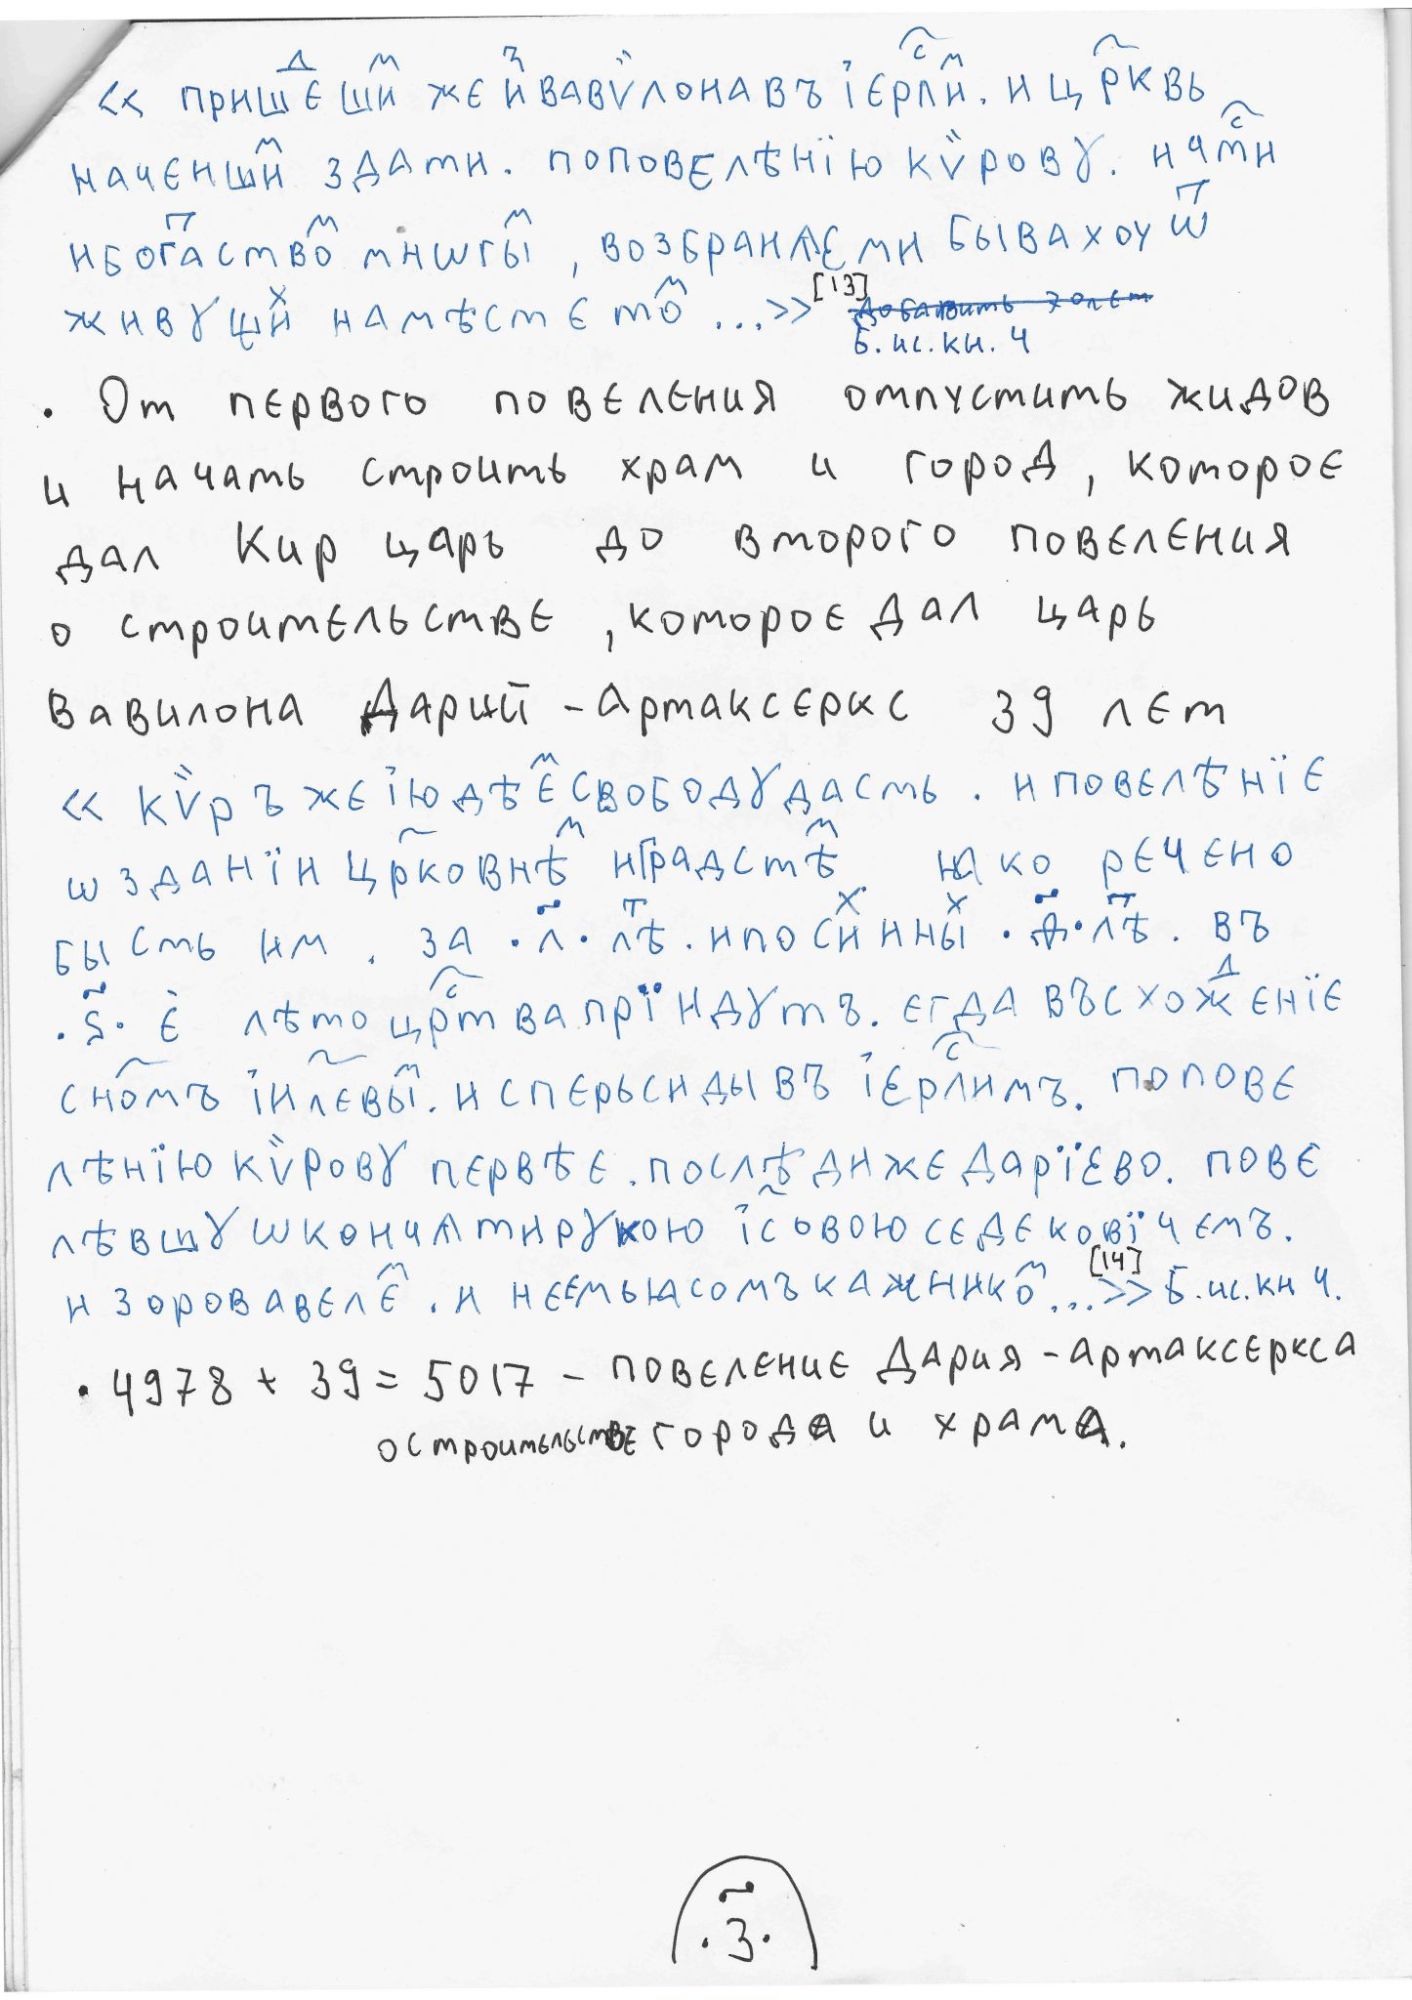 << пришедшим же из вавѷлона въ іерⷭ҇лим. и цр҃квь
наченшим здати. поповелѣнїю кѷровꙋ. начⷭ҇ми
ибогаством мнѡгым, возбранѧеми бываху ѿ
живꙋщих наместе том ...>> [13] добавить 70 лет
Б.ис.кн.4
. От первого повеления отпустить жидов
и начать строить храм и город, которое
дал Кир царь до второго повеления
о строительстве, которое дал царь
Вавилона Дарий-Артаксеркс 39 лет
<< кѷръ же іюдѣем свободꙋ дасть. и повелѣнїе
ѡ зданїи цр҃ковнѣм иградстѣм. ꙗко речено
бысть им. за .л҃. лѣт. ипосих иных .д҃. лѣт. въ
.ѕ҃. е лѣто црⷭ҇тва прїидꙋтъ. егда въсхожденїе
сн҃омъ іи҃левым. и сперьсиды въ іерⷭ҇лимъ. попове
лѣнїю кѷровꙋ первѣе. послѣди же дарїево. пове
лѣвшꙋ ѡкончѧти рꙋкою іс҃овою седековїчемъ.
и зоровавелем. и неемьюсомъ кажником...>> [14] Б.ис.кн 4.
. 4978 + 39 = 5017 – повеление Дария-артаксеркса
о строительстве города и храма.
.З҃.